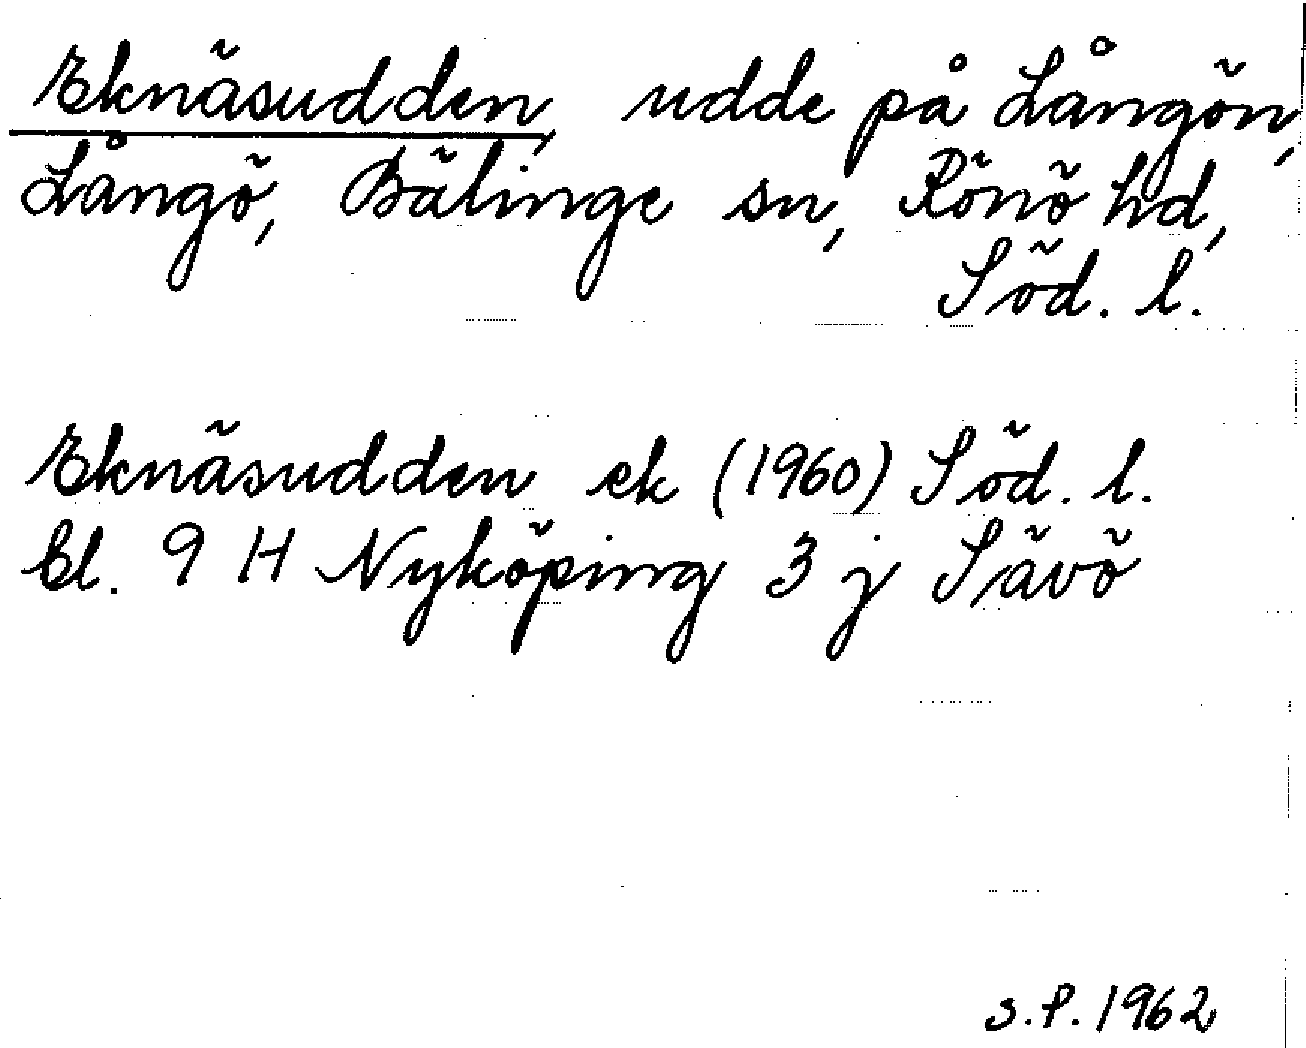 Eknäsudden, udde på Långön,
Långö, Bälinge sn, Rönö hd,
Söd. l.
Eknäsudden ek (1960) Söd. l.
bl. 9 H Nyköping 3 j Sävö
S.P. 1962